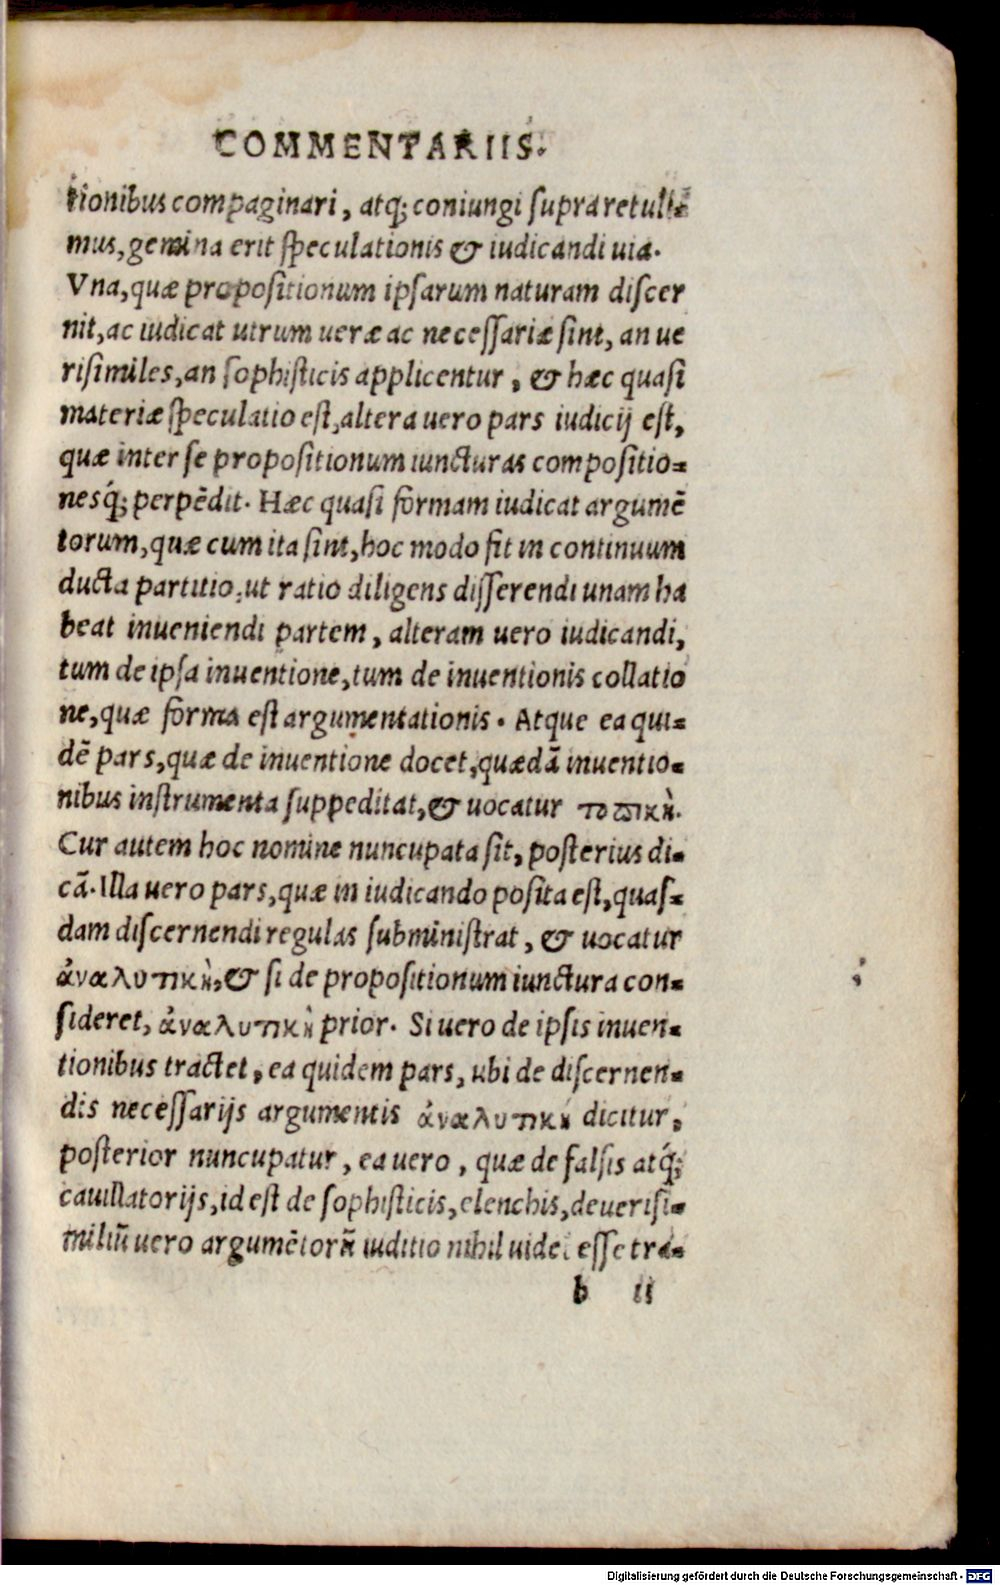 COMMENTARIIS.
tionibus compaginari, atq; coniungi supra retuli-
mus, gemina erit speculationis & iudicandi uia.
Vna, quæ propositionum ipsarum naturam discer
nit, ac iudicat utrum ueræ ac necessariæ sint, an ue
risimiles, an sophisticis applicentur, & hæc quasi
materiæ speculatio est, altera uero pars iudicij est,
quæ inter se propositionum iuncturas compositio-
nesq́; perpēdit. Hæc quasi formam iudicat argumē
torum, quæ cum ita sint, hoc modo fit in continuum
ducta partitio, ut ratio diligens disserendi unam ha
beat inueniendi partem, alteram uero iudicandi,
tum de ipsa inuentione, tum de inuentionis collatio
ne, quæ forma est argumentationis. Atque ea qui-
dē pars, quæ de inuentione docet, quædā inuentio-
nibus instrumenta suppeditat, & uocatur τοπικὴ.
Cur autem hoc nomine nuncupata sit, posterius di-
cā. Illa uero pars, quæ in iudicando posita est, quas-
dam discernendi regulas subministrat, & uocatur
ἀναλυτικὴ, & si de propositionum iunctura con-
sideret, ἀναλυτικὴ prior. Si uero de ipsis inuen-
tionibus tractet, ea quidem pars, ubi de discernen-
dis necessarijs argumentis ἀναλυτικὴ dicitur,
posterior nuncupatur, ea uero, quæ de falsis atq́;
cauillatorijs, id est de sophisticis, elenchis, de uerisi-
miliū uero argumētorū iuditio nihil uidet esse tra-
b ii
Digitalisierung gefördert durch die Deutsche Forschungsgemeinschaft - DFG